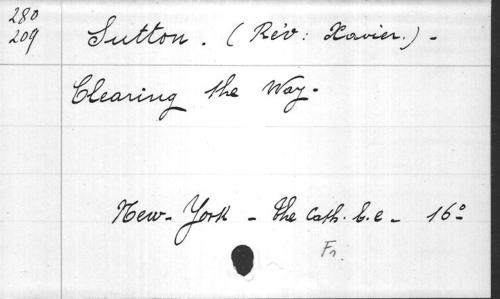 280
209
Sutton. (Rév: Xavier.) -
Clearing the Way.
New-York - the Cath. b. e - 16º
Fr.